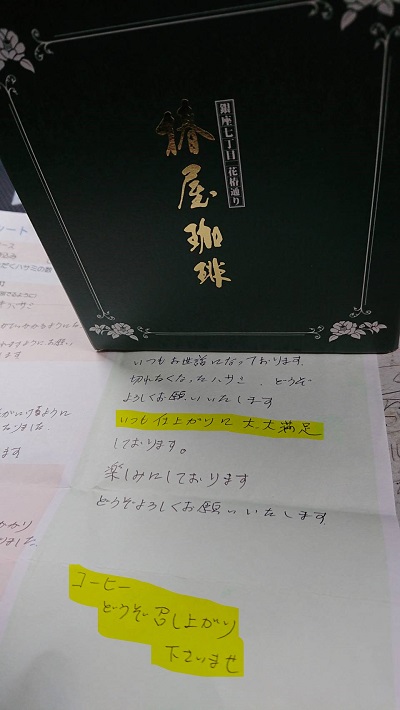 銀座七丁目 花椿通り
椿屋珈琲
いつもお世話になっております。
切れなくなったハサミ、どうぞ
よろしくお願いいたします
いつも仕上がりに大大満足
しております。
楽しみにしております
どうぞよろしくお願いいたします
コーヒー
どうぞ召し上がり
下さいませ